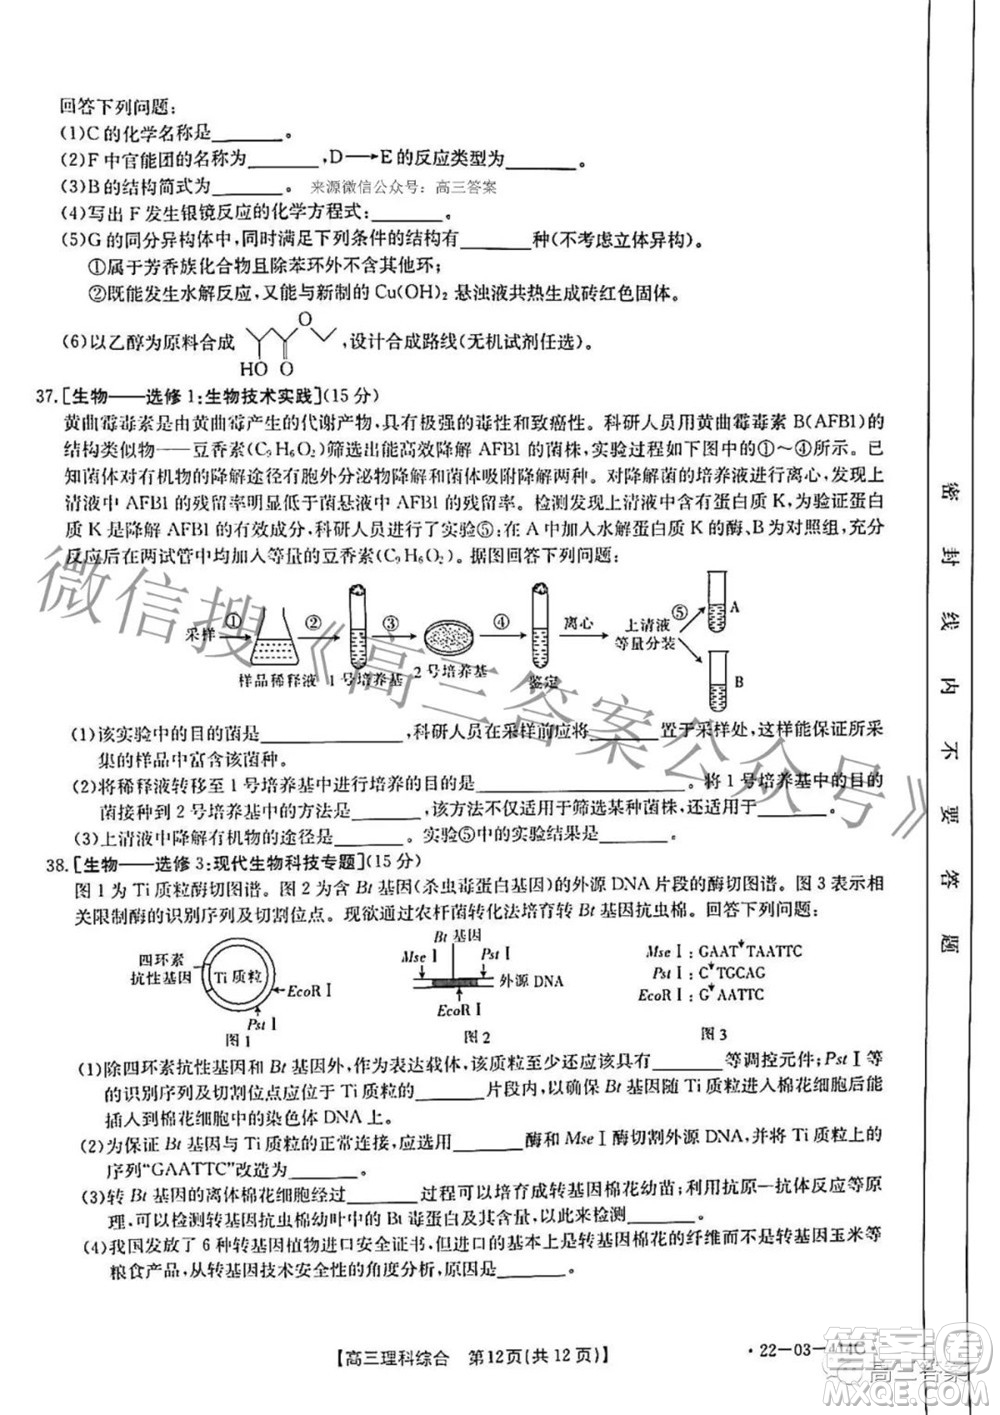 回答下列问题:
(1)C的化学名称是______。
(2)F中官能团的名称为______,D→E的反应类型为______。
(3)B的结构简式为______。 来源微信公众号:高三答案
(4)写出F发生银镜反应的化学方程式:______。
(5)G的同分异构体中,同时满足下列条件的结构有______种(不考虑立体异构)。
①属于芳香族化合物且除苯环外不含其他环;
②既能发生水解反应,又能与新制的Cu(OH)₂悬浊液共热生成砖红色固体。
(6)以乙醇为原料合成 HO O O ,设计合成路线(无机试剂任选)。
37.[生物——选修1:生物技术实践](15分)
黄曲霉毒素是由黄曲霉产生的代谢产物,具有极强的毒性和致癌性。科研人员用黄曲霉毒素B(AFB1)的
结构类似物——豆香素(C₉H₆O₂)筛选出能高效降解AFB1的菌株,实验过程如下图中的①~④所示。已
知菌体对有机物的降解途径有胞外分泌物降解和菌体吸附降解两种。对降解菌的培养液进行离心,发现上
清液中AFB1的残留率明显低于菌悬液中AFB1的残留率。检测发现上清液中含有蛋白质K,为验证蛋白
质K是降解AFB1的有效成分,科研人员进行了实验⑤:在A中加入水解蛋白质K的酶、B为对照组,充分
反应后在两试管中均加入等量的豆香素(C₉H₆O₂)。据图回答下列问题:
采样 ① 样品稀释液 ② 1号培养基 ③ 2号培养基 ④ 鉴定 离心 上清液 等量分装 ⑤ A B
(1)该实验中的目的菌是______,科研人员在采样前应将______置于采样处,这样能保证所采
集的样品中富含该菌种。
(2)将稀释液转移至1号培养基中进行培养的目的是______。将1号培养基中的目的
菌接种到2号培养基中的方法是______,该方法不仅适用于筛选某种菌株,还适用于______。
(3)上清液中降解有机物的途径是______。实验⑤中的实验结果是______。
38.[生物——选修3:现代生物科技专题](15分)
图1为Ti质粒酶切图谱。图2为含Bt基因(杀虫毒蛋白基因)的外源DNA片段的酶切图谱。图3表示相
关限制酶的识别序列及切割位点。现欲通过农杆菌转化法培育转Bt基因抗虫棉。回答下列问题:
四环素
抗性基因
Ti质粒
EcoRⅠ
PstⅠ
图1
Bt基因
MseⅠ PstⅠ
外源DNA
EcoRⅠ
图2
MseⅠ:GAAT▼TAATTC
PstⅠ:C▼TGCAG
EcoRⅠ:G▼AATTC
图3
(1)除四环素抗性基因和Bt基因外,作为表达载体,该质粒至少还应该具有______等调控元件;PstⅠ等
的识别序列及切割位点应位于Ti质粒的______片段内,以确保Bt基因随Ti质粒进入棉花细胞后能
插入到棉花细胞中的染色体DNA上。
(2)为保证Bt基因与Ti质粒的正常连接,应选用______酶和MseⅠ酶切割外源DNA,并将Ti质粒上的
序列“GAATTC”改造为______。
(3)转Bt基因的离体棉花细胞经过______过程可以培育成转基因棉花幼苗;利用抗原—抗体反应等原
理,可以检测转基因抗虫棉幼叶中的Bt毒蛋白及其含量,以此来检测______。
(4)我国发放了6种转基因植物进口安全证书,但进口的基本上是转基因棉花的纤维而不是转基因玉米等
粮食产品,从转基因技术安全性的角度分析,原因是______。
【高三理科综合 第12页(共12页)】
·22-03-414C·
密封线内不要答题
微信搜《高三答案公众号》
高三答案
MXQE.COM